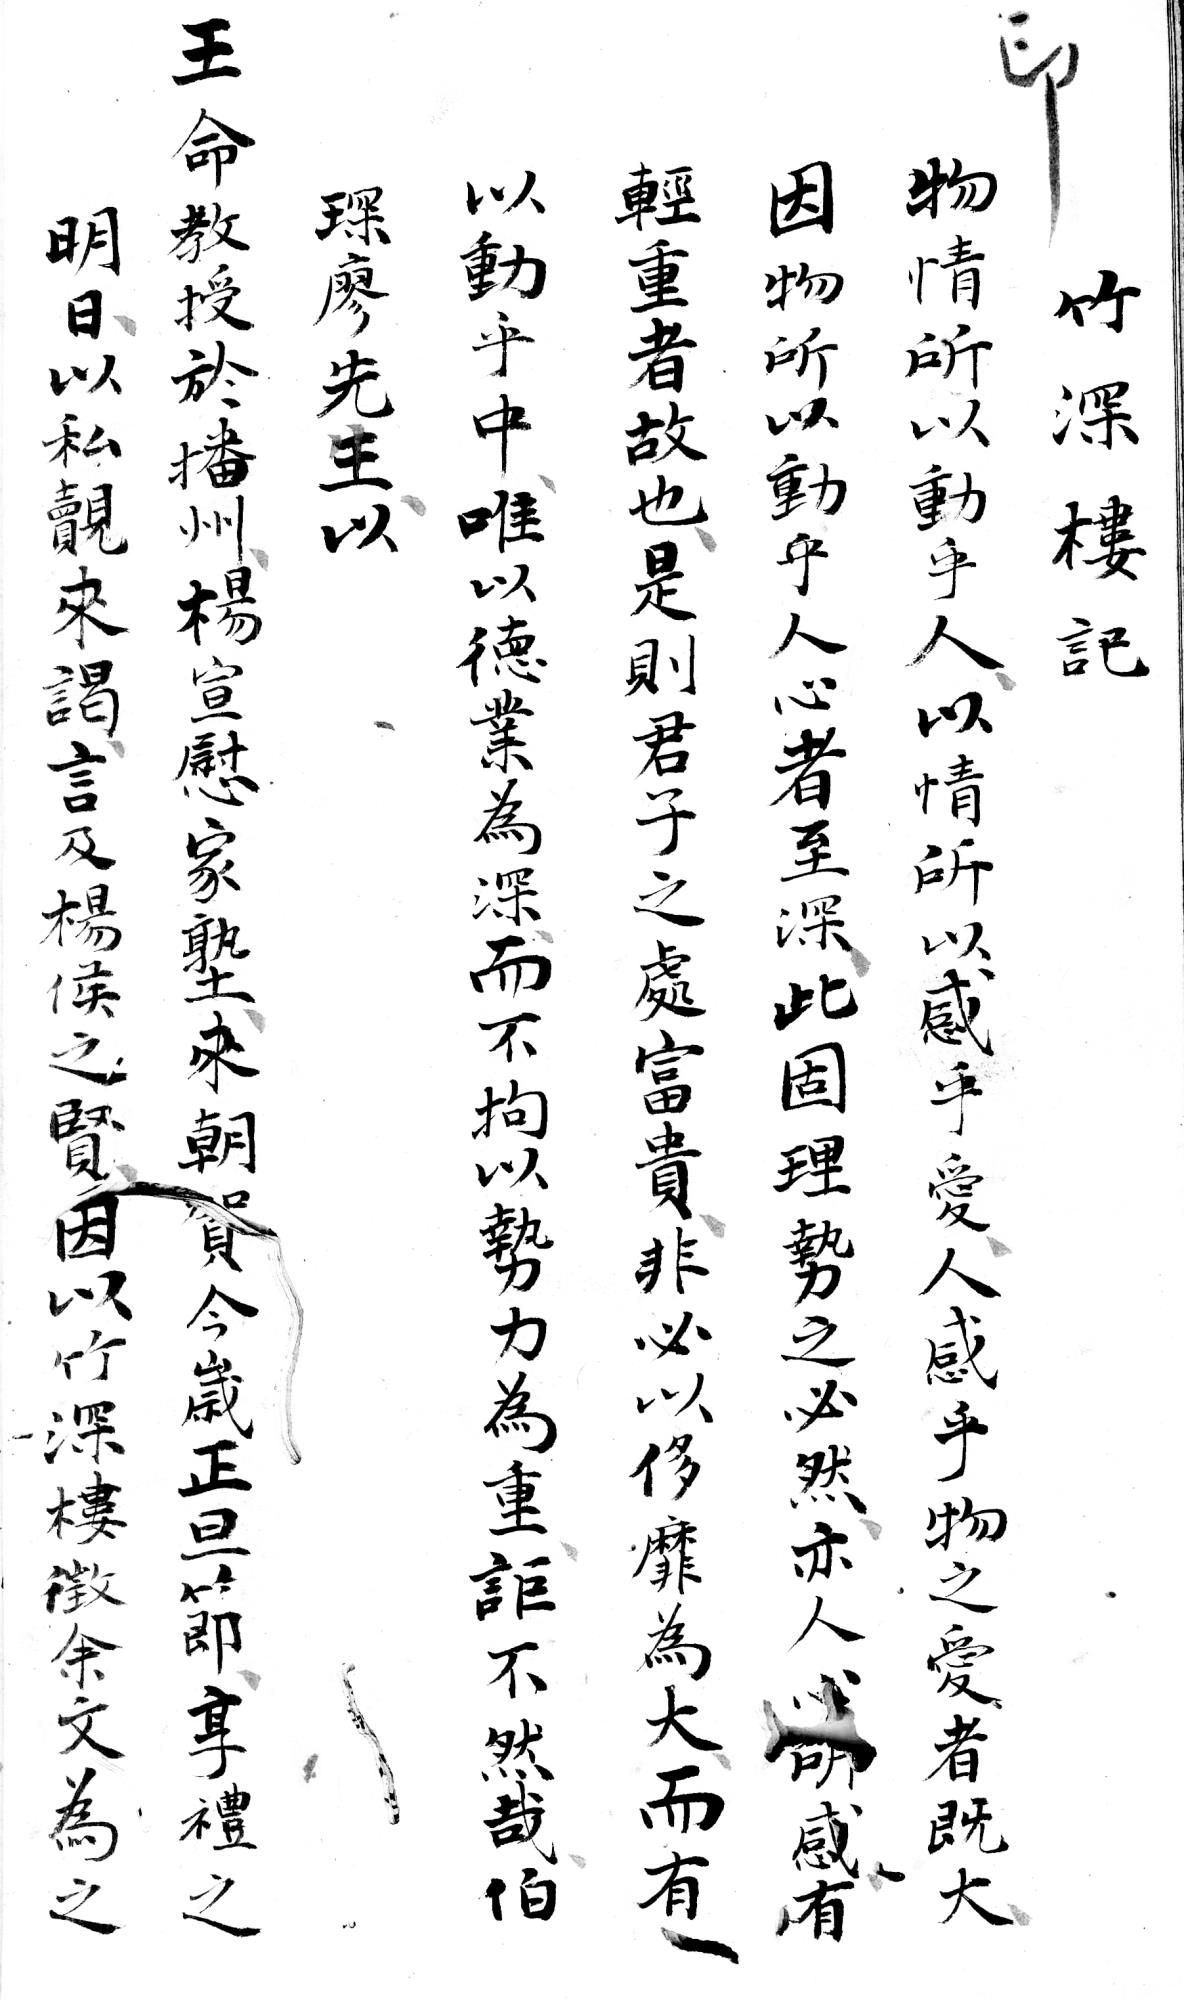 印
竹深樓記
物情所以動乎人以情所以感乎愛人感乎物之愛者既大
因物所以動乎人心者至深此固理勢之必然亦人以所感有
輕重者故也是則君子之處富貴非必以侈靡為大而有
以動乎中唯以德業為深而不拘以勢力為重詎不然哉伯
琛廖先生以
王命教授於播州楊宣慰家塾來朝賀今歲正旦節享禮之
明日以私覿來謁言及楊侯之賢因以竹深樓徵余文為之